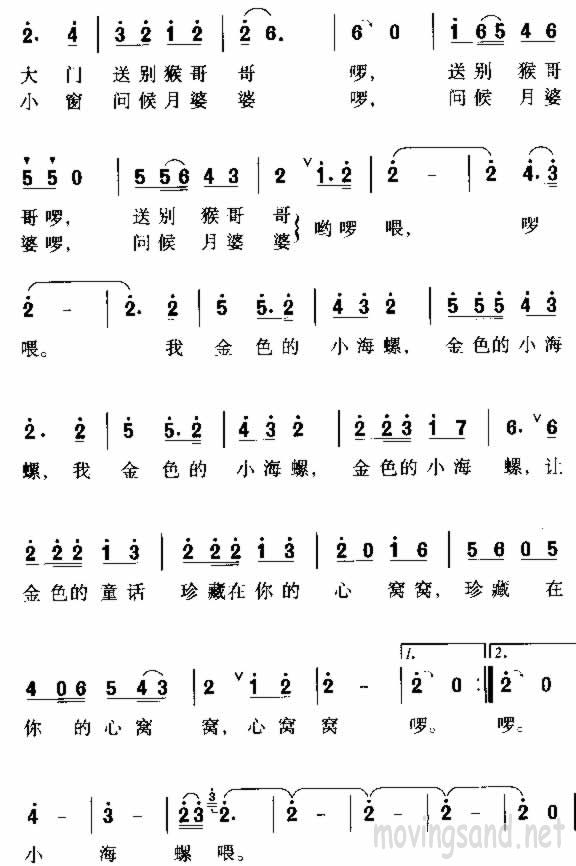 2. 4 | 3 2 1 2 | 2 6. | 6 0 | 1 6 5 4 6
大门 送别猴哥 哥 啰， 送别 猴哥
小窗 问候月婆 婆 啰， 问候 月婆
5 5 0 | 5 5 6 4 3 | 2 ∨ 1. 2 | 2 - | 2 4. 3
哥啰， 送别 猴哥 哥 哟啰 喂， 啰
婆啰， 问候 月婆 婆
2 - | 2. 2 | 5 5. 2 | 4 3 2 | 5 5 5 4 3
喂。 我 金 色的 小海螺， 金色的小海
2. 2 | 5 5. 2 | 4 3 2 | 2 2 3 1 7 | 6. ∨ 6
螺， 我 金 色的 小海螺， 金色的小海 螺， 让
2 2 2 1 3 | 2 2 2 1 3 | 2 0 1 6 | 5 6 0 5
金色的 童话 珍藏在你的 心 窝窝， 珍藏 在
1. 2.
4 0 6 5 4 3 | 2 ∨ 1 2 | 2 - | 2 0 :| 2 0
你 的心窝 窝， 心窝 窝 啰。 啰。
4 - | 3 - | 2 3 3 2. | 2 - | 2 - | 2 - | 2 0
小 海 螺 喂。
movingsand.net